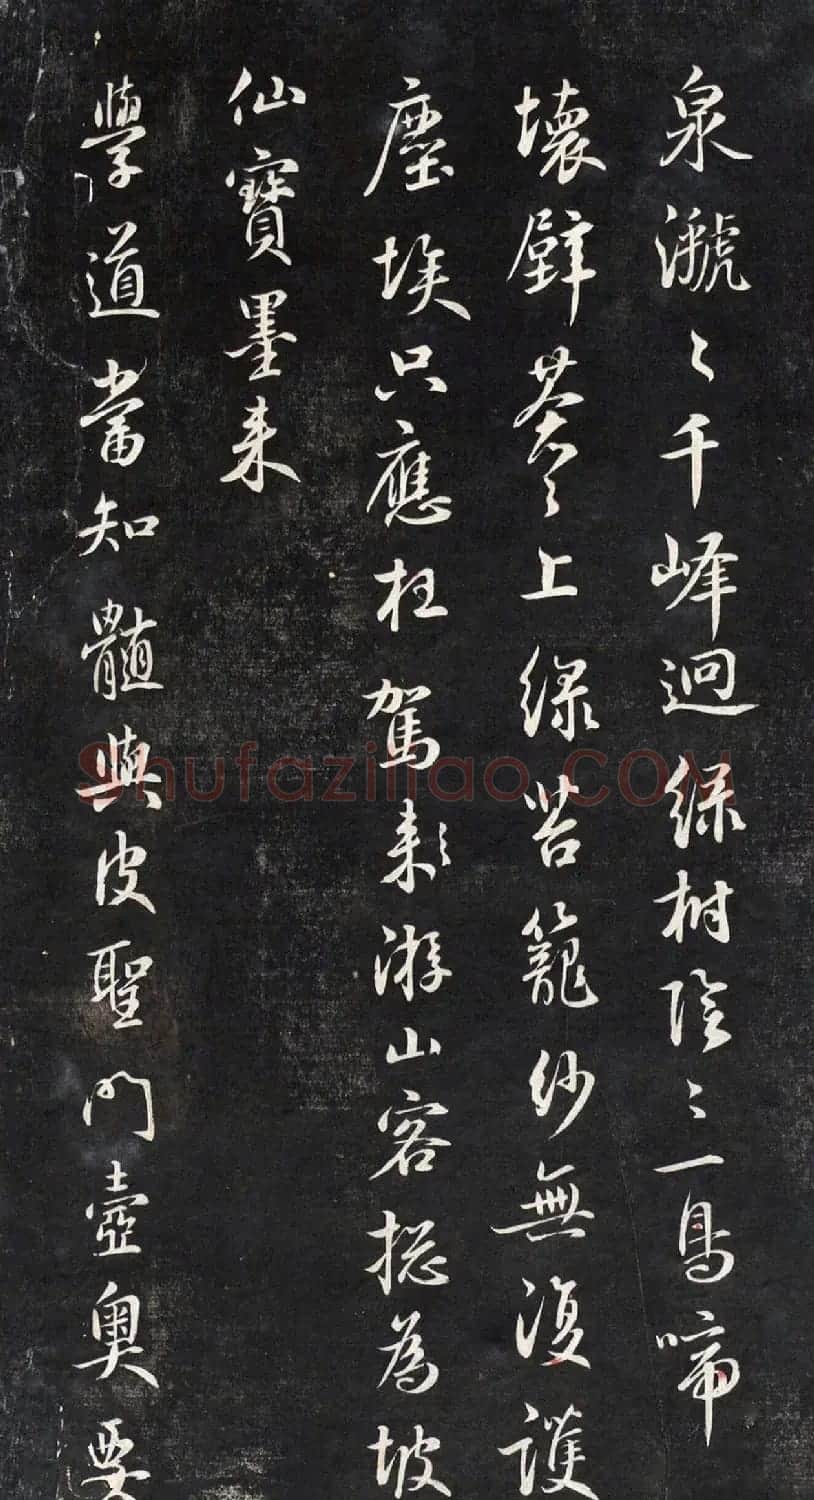 泉㶁〻千峰迥綠樹陰〻一鳥啼
壞壁苍〻上綠苔籠紗無復護
塵埃只應枉駕款游山客揔為坡
仙寶墨来
學道當知髓與皮聖門壼奧要
Shufaziliao.COM